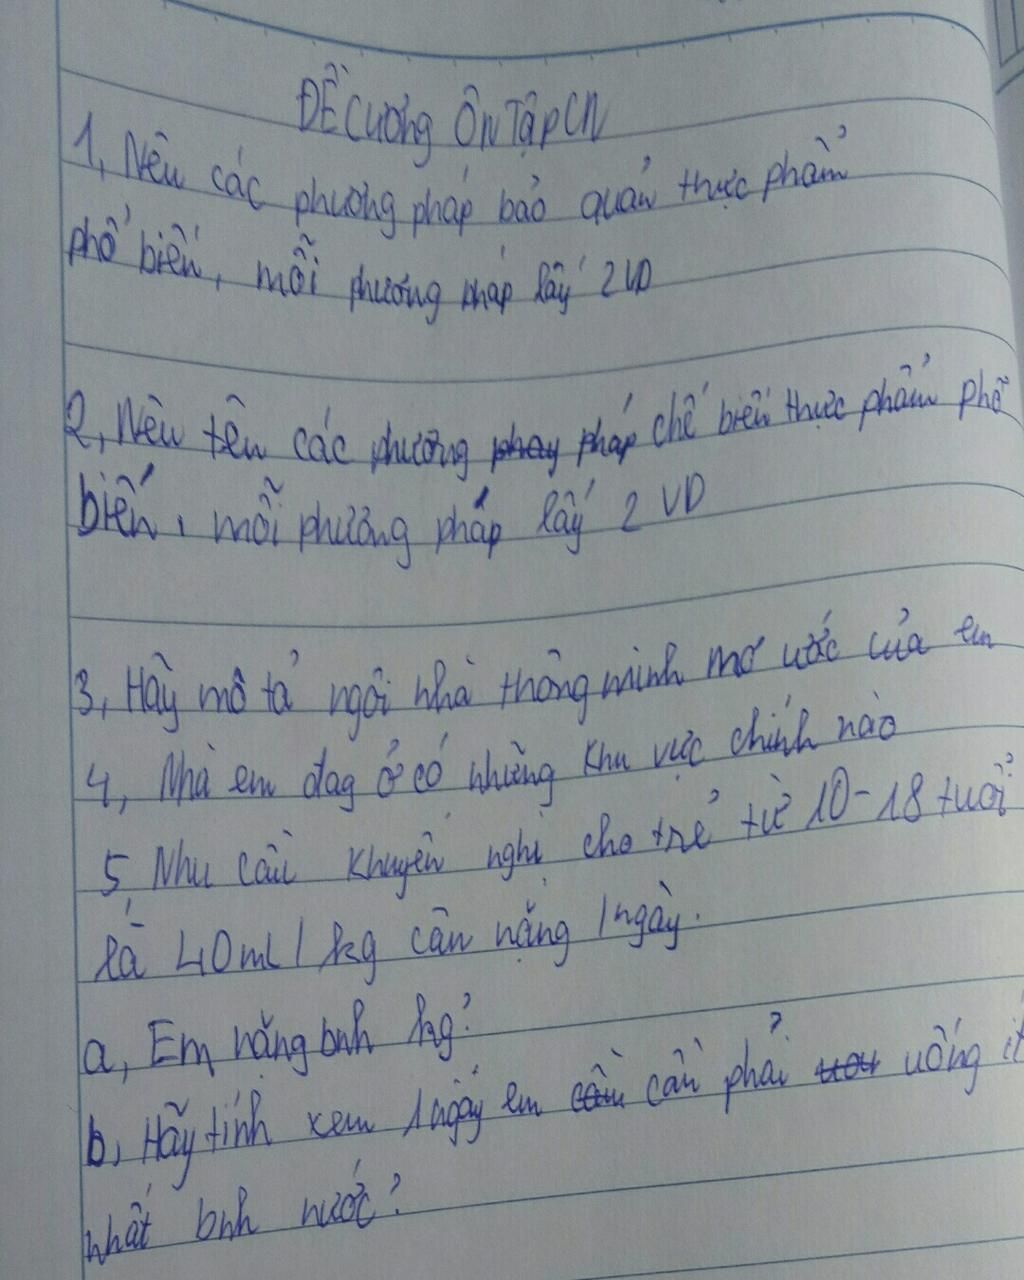 ĐỀ Cương Ôn Tập CN
1, Nêu các phương pháp bảo quản thực phẩm
phổ biến, mỗi phương pháp lấy 2 VD
2, Nêu tên các phương pháp chế biến thực phẩm phổ
biến, mỗi phương pháp lấy 2 VD
3, Hãy mô tả ngôi nhà thông minh mơ ước của em
4, Nhà em đag ở có những khu vực chính nào
5 Nhu cầu khuyến nghị cho trẻ từ 10-18 tuổi
là 40ml / kg cân nặng / ngày.
a, Em nặng bnh kg?
b, Hãy tính xem 1 ngày em cần phải uống ít
nhất bnh nước?